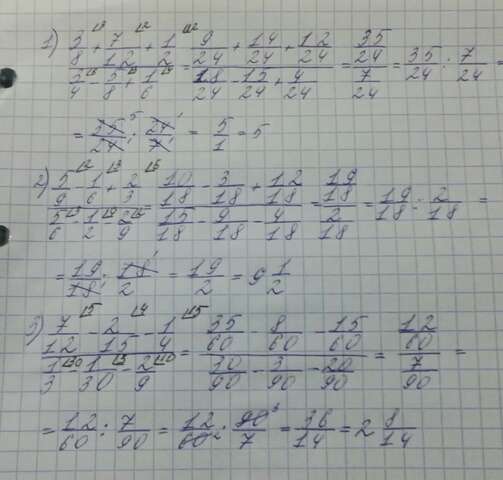 1) (3/8 + 7/12 + 1/2)/(3/4 - 5/8 + 1/6) = (9/24 + 14/24 + 12/24)/(18/24 - 15/24 + 4/24) = (35/24)/(7/24) = 35/24 : 7/24 =
= 35/24 · 24/7 = 5/1 = 5
2) (5/9 - 1/6 + 2/3)/(5/6 - 1/2 - 2/9) = (10/18 - 3/18 + 12/18)/(15/18 - 9/18 - 4/18) = (19/18)/(2/18) = 19/18 : 2/18 =
= 19/18 · 18/2 = 19/2 = 9 1/2
3) (7/12 - 2/15 - 1/4)/(1/3 - 1/30 - 2/9) = (35/60 - 8/60 - 15/60)/(30/90 - 3/90 - 20/90) = (12/60)/(7/90) =
= 12/60 : 7/90 = 12/60 · 90/7 = 36/14 = 2 8/14